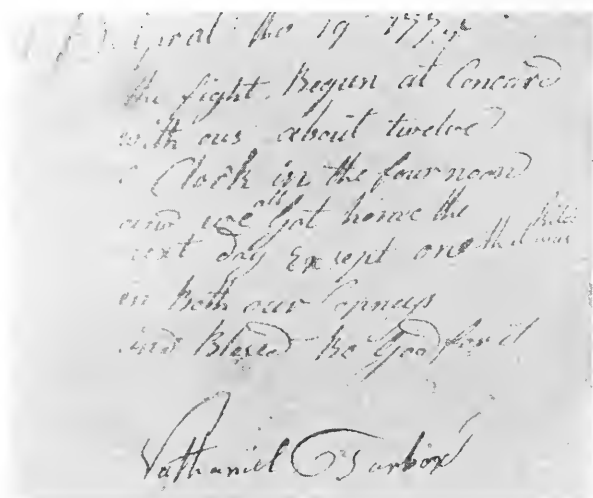 the 19 1775
the fight Begun at Concard
with ous about twelve
Clock in the fournoon
and we all Got home the
next day Except one that was kild
in both our Compnys
and Blessed be God for it
Nathaniel Tarbox